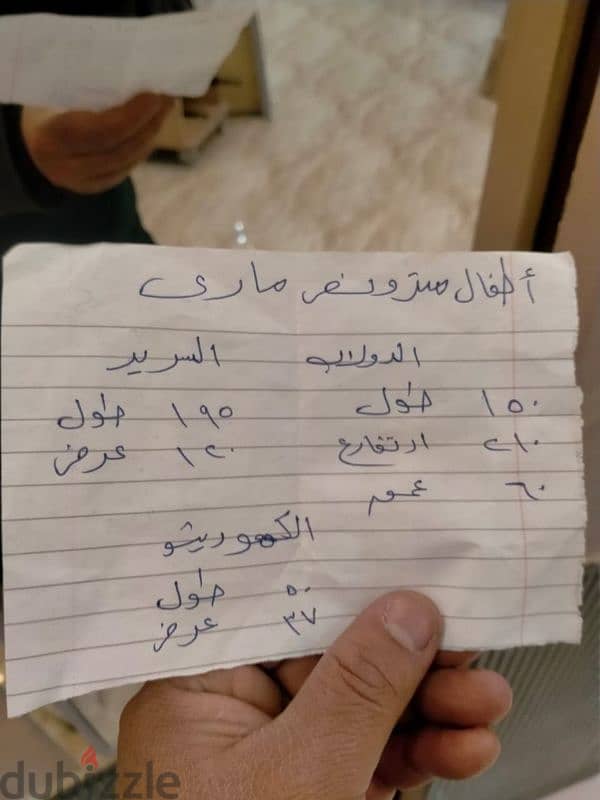 أطفال مترونص مارى
الدولاب
١٥٠ طول
٢١٠ ارتفاع
٦٠ عمق
السرير
١٩٥ طول
١٢٠ عرض
الكمودينو
٥٠ طول
٣٧ عرض
dubizzle